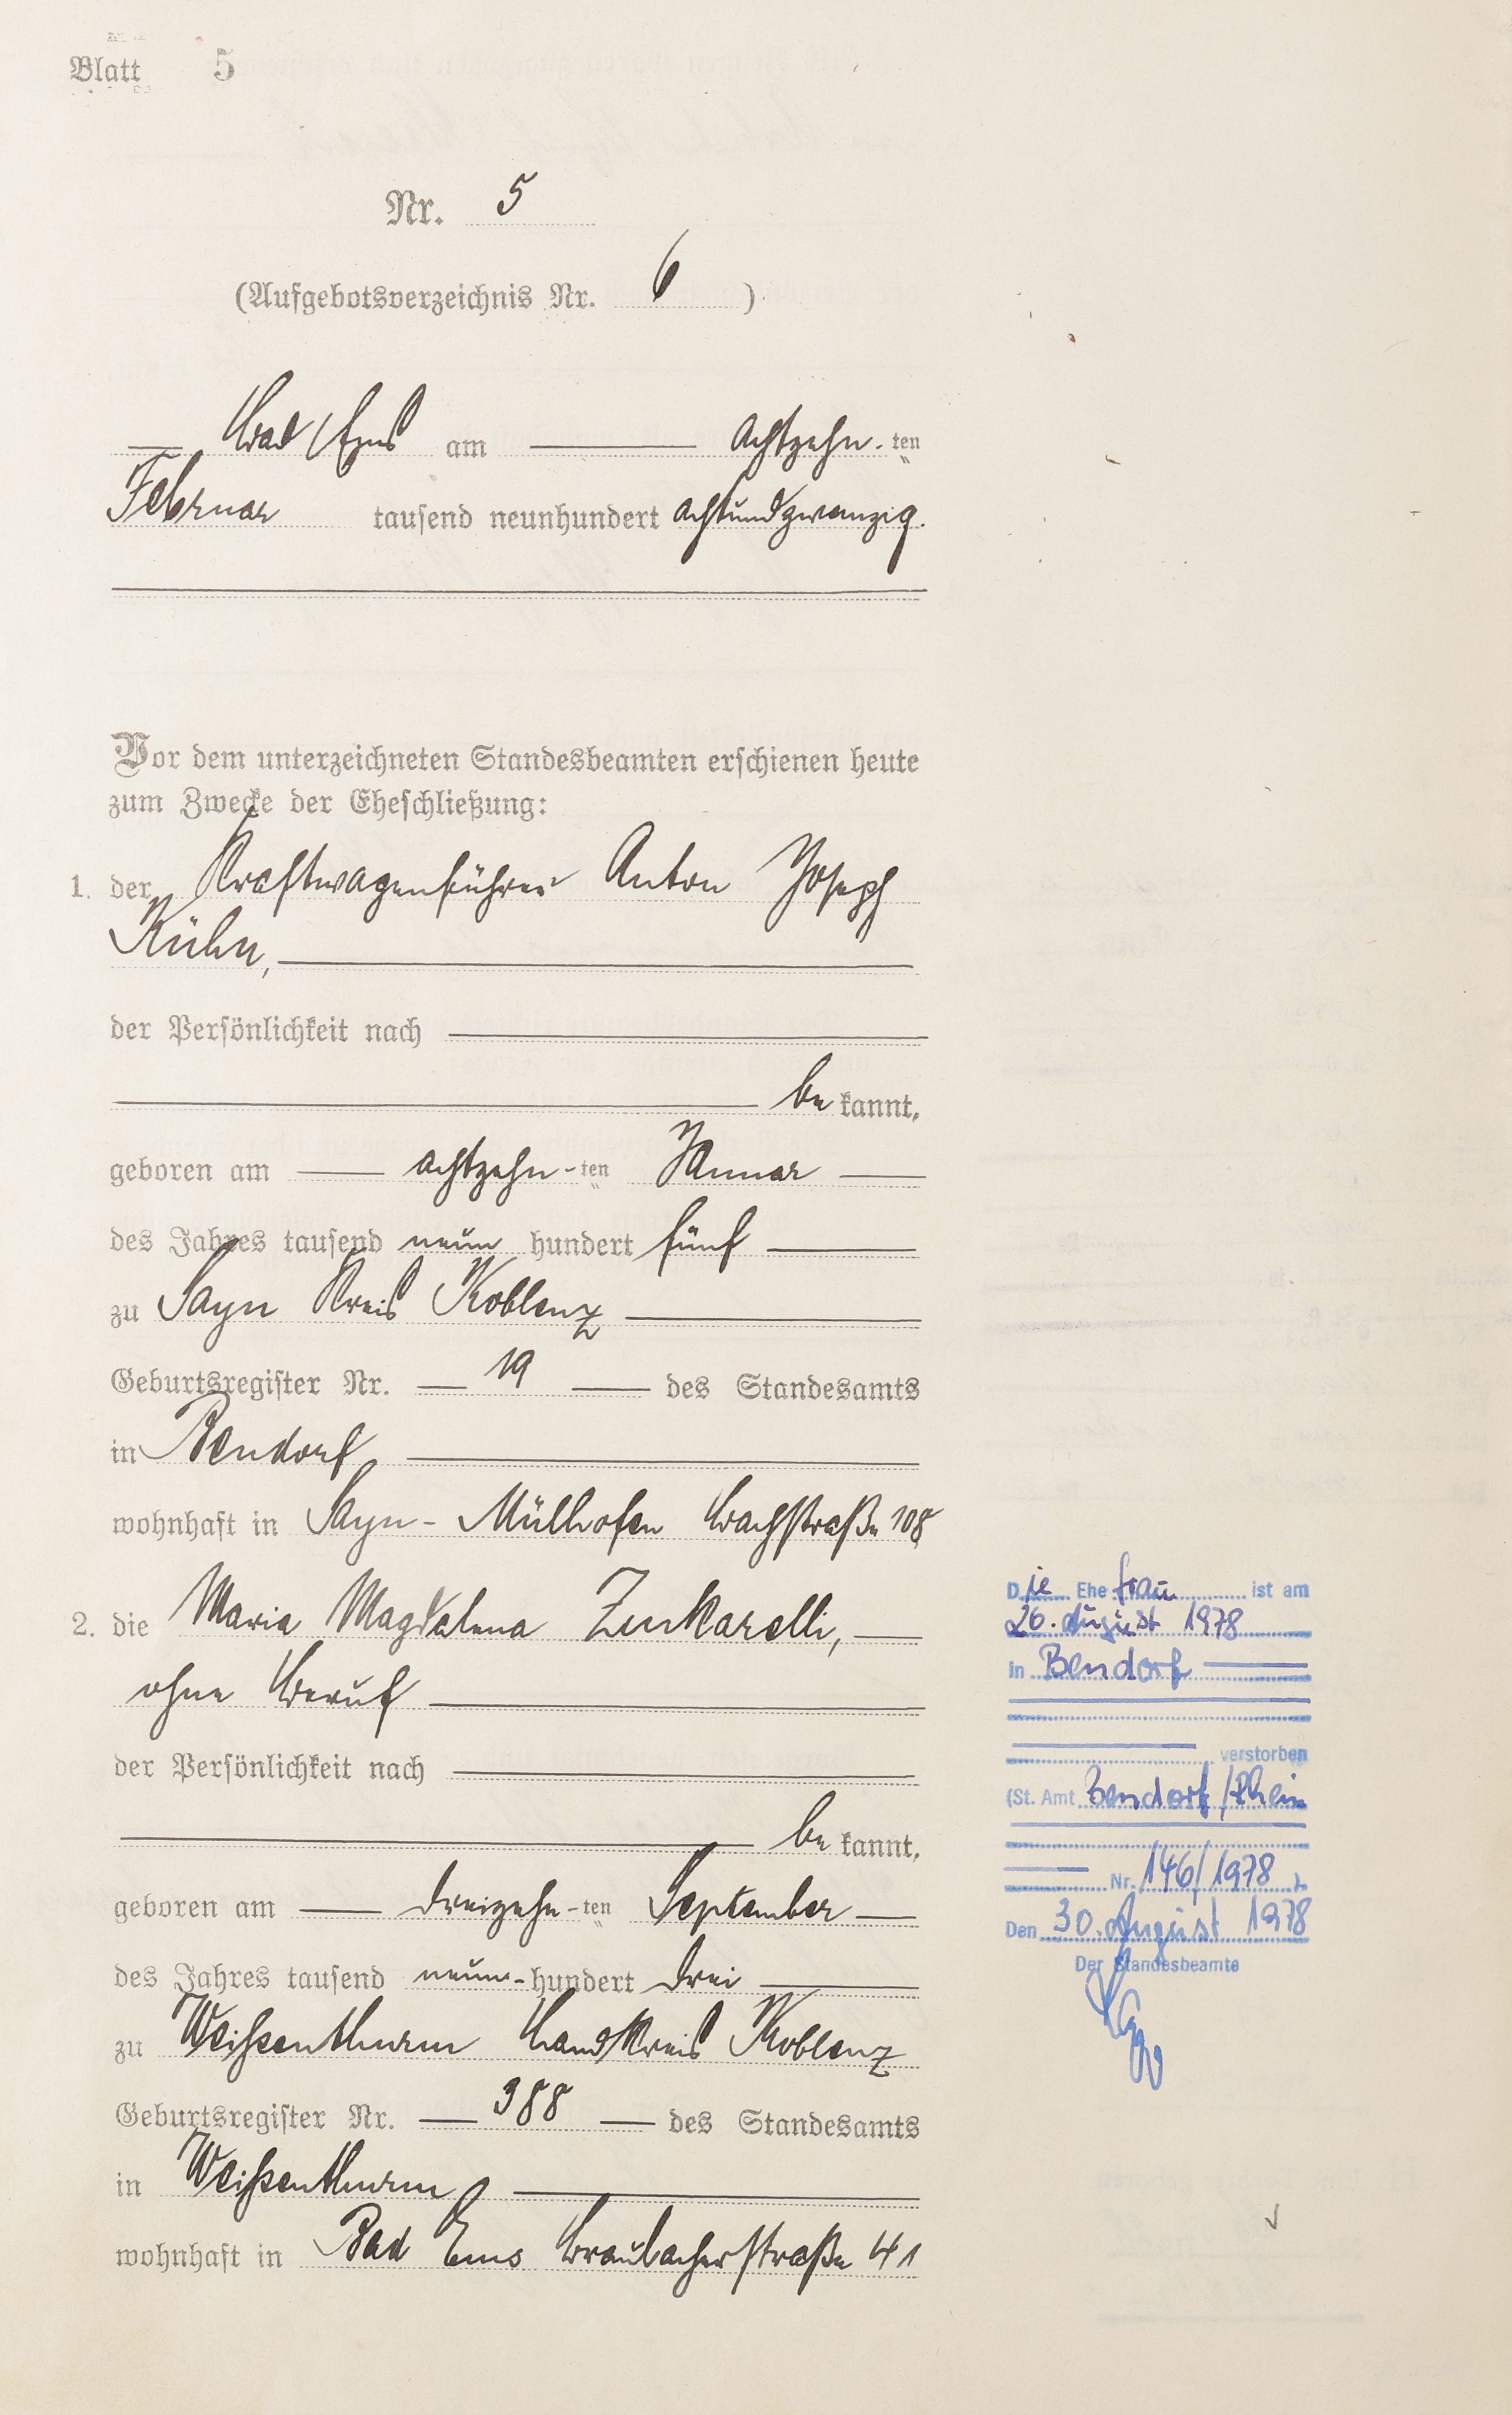 Blatt 5
Nr. 5
(Aufgebotsverzeichnis Nr. 6 )
Bad Ems am achtzehn-ten
Februar tausend neunhundert achtundzwanzig.
Vor dem unterzeichneten Standesbeamten erschienen heute
zum Zwecke der Eheschließung:
1. der Kraftwagenführer Anton Joseph
Kühn,
der Persönlichkeit nach
be kannt,
geboren am achtzehn-ten Januar
des Jahres tausend neun hundert fünf
zu Sayn Kreis Koblenz
Geburtsregister Nr. 19 des Standesamts
in Bendorf
wohnhaft in Sayn-Mülhofen Bachstraße 108
2. die Maria Magdalena Zinkarelli,
ohne Beruf
der Persönlichkeit nach
be kannt,
geboren am dreizehn-ten September
des Jahres tausend neun-hundert drei
zu Weißenthurm Landkreis Koblenz
Geburtsregister Nr. 388 des Standesamts
in Weißenthurm
wohnhaft in Bad Ems Braubacherstraße 41
Die Ehefrau ist am
26. August 1978
in Bendorf
verstorben
(St. Amt Bendorf/Rhein
Nr. 146/1978 ).
Den 30. August 1978
Der Standesbeamte